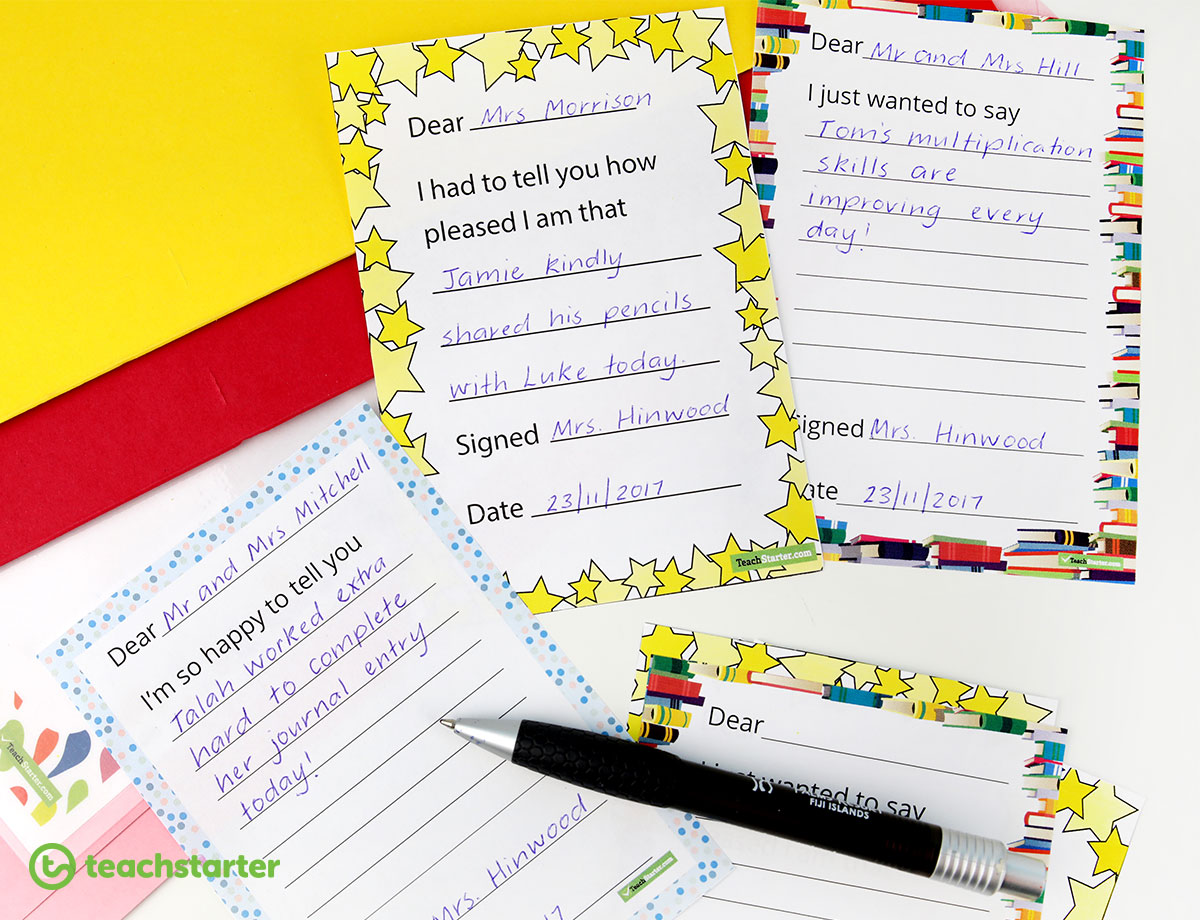 Dear Mrs Morrison
I had to tell you how
pleased I am that
Jamie kindly
shared his pencils
with Luke today.
Signed Mrs. Hinwood
Date 23/11/2017
TeachStarter.com
Dear Mr and Mrs Hill
I just wanted to say
Tom's multiplication
skills are
improving every
day!
igned Mrs. Hinwood
ate 23/11/2017
TeachStarter.com
Dear Mr and Mrs Mitchell
I'm so happy to tell you
Talah worked extra
hard to complete
her journal entry
today!
Mrs. Hinwood
2017
TeachStarter.com
Dear
I just wanted to say
FIJI ISLANDS
TeachStarter.com
teachstarter